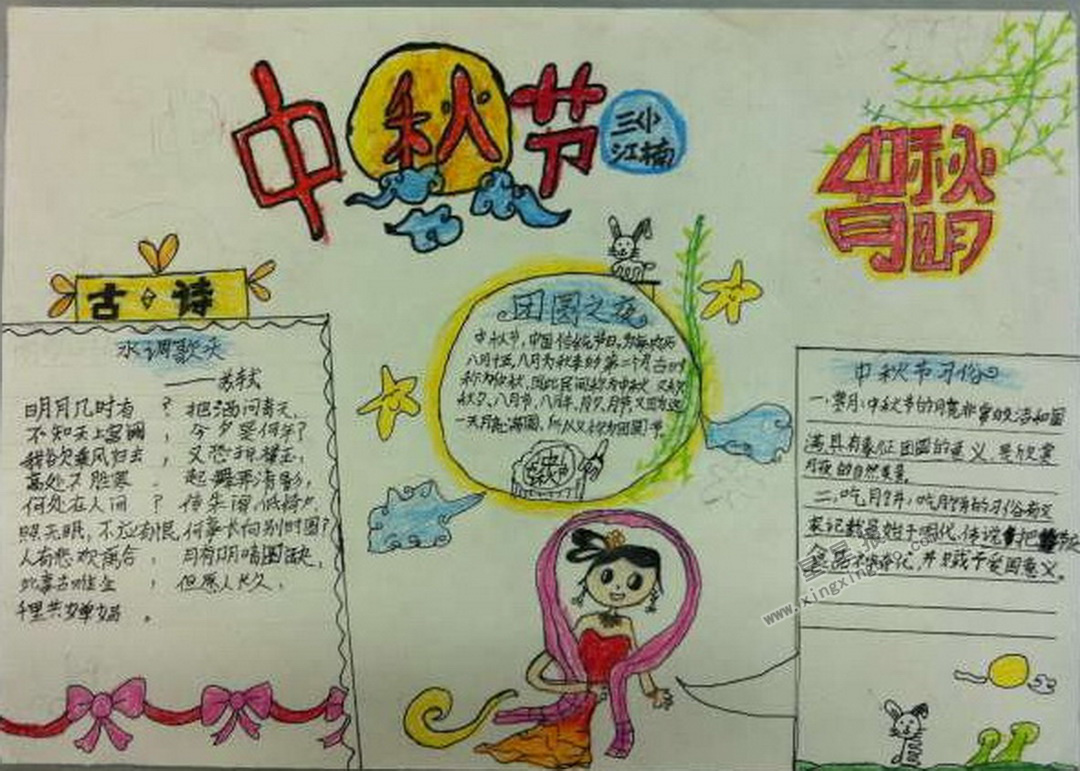 中秋节
三小
江楠
中秋
月明
古诗
水调歌头
——苏轼
明月几时有？把酒问青天，
不知天上宫阙，今夕是何年？
我欲乘风归去，又恐琼楼玉宇，
高处不胜寒。起舞弄清影，
何处在人间？转朱阁，低绮户，
照无眠，不应有恨，何事长向别时圆？
人有悲欢离合，月有阴晴圆缺，
此事古难全，但愿人长久，
千里共婵娟。
团圆之夜
中秋节，中国传统节日，为每年农历
八月十五，八月为秋季的第二个月，古时
称为仲秋，因此民间称为中秋，又称
秋夕、八月节、八月半、月夕、月节，又因为这
一天月亮满圆，所以又称为团圆节。
中秋
中秋节习俗
一、赏月：中秋节的月亮非常的皎洁和圆
满具有象征团圆的意义，是欣赏
月夜的自然美景。
二、吃月饼：吃月饼的习俗有文
来记载是始于唐代，传说把
并只成于爱国意义。
www.ixingxing.com